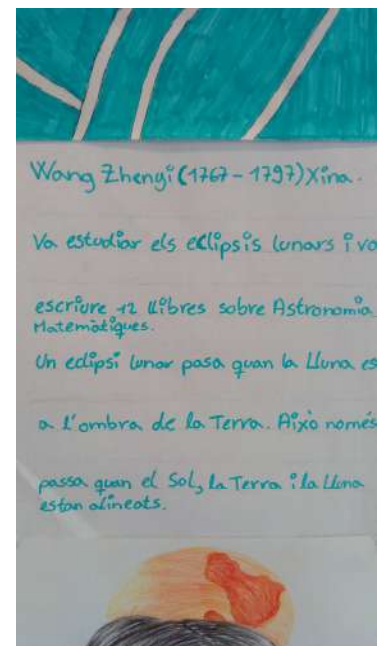 Wang Zhenyi (1767-1797) Xina.
Va estudiar els eclipsis lunars i va
escriure 12 llibres sobre Astronomia
Matemàtiques.
Un eclipsi lunar pasa quan la Lluna es
a l'ombra de la Terra. Això només
passa quan el Sol, la Terra i la Lluna
estan alineats.